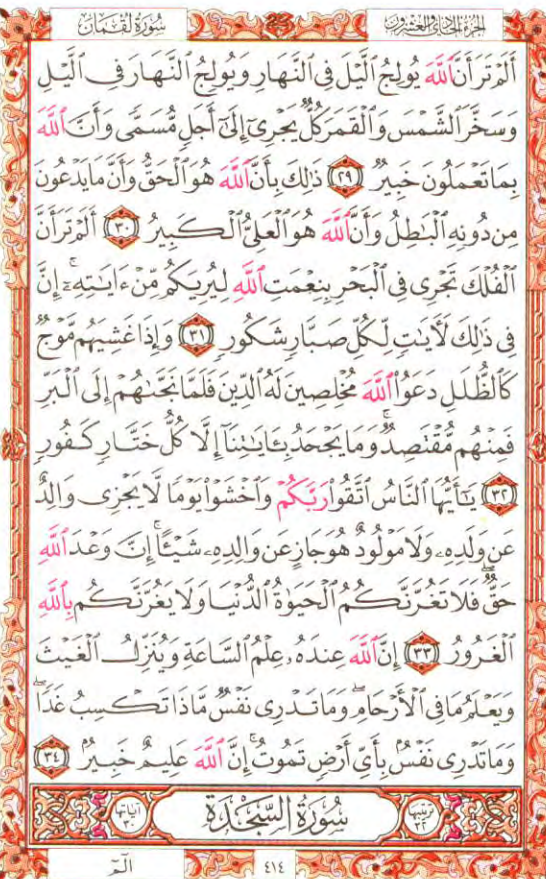 سُورَةُ لُقْمَان الجُزْءُ الحَادِي وَالعِشْرُون
أَلَمْ تَرَ أَنَّ ٱللَّهَ يُولِجُ ٱلَّيْلَ فِى ٱلنَّهَارِ وَيُولِجُ ٱلنَّهَارَ فِى ٱلَّيْلِ
وَسَخَّرَ ٱلشَّمْسَ وَٱلْقَمَرَ كُلٌّ يَجْرِىٓ إِلَىٰٓ أَجَلٍ مُّسَمًّى وَأَنَّ ٱللَّهَ
بِمَا تَعْمَلُونَ خَبِيرٌ ٢٩ ذَٰلِكَ بِأَنَّ ٱللَّهَ هُوَ ٱلْحَقُّ وَأَنَّ مَا يَدْعُونَ
مِن دُونِهِ ٱلْبَٰطِلُ وَأَنَّ ٱللَّهَ هُوَ ٱلْعَلِىُّ ٱلْكَبِيرُ ٣٠ أَلَمْ تَرَ أَنَّ
ٱلْفُلْكَ تَجْرِى فِى ٱلْبَحْرِ بِنِعْمَتِ ٱللَّهِ لِيُرِيَكُم مِّنْ ءَايَٰتِهِۦٓ ۚ إِنَّ
فِى ذَٰلِكَ لَءَايَٰتٍ لِّكُلِّ صَبَّارٍ شَكُورٍ ٣١ وَإِذَا غَشِيَهُم مَّوْجٌ
كَٱلظُّلَلِ دَعَوُا۟ ٱللَّهَ مُخْلِصِينَ لَهُ ٱلدِّينَ فَلَمَّا نَجَّىٰهُمْ إِلَى ٱلْبَرِّ
فَمِنْهُم مُّقْتَصِدٌ ۚ وَمَا يَجْحَدُ بِـَٔايَٰتِنَآ إِلَّا كُلُّ خَتَّارٍ كَفُورٍ
٣٢ يَٰٓأَيُّهَا ٱلنَّاسُ ٱتَّقُوا۟ رَبَّكُمْ وَٱخْشَوْا۟ يَوْمًا لَّا يَجْزِى وَالِدٌ
عَن وَلَدِهِۦ وَلَا مَوْلُودٌ هُوَ جَازٍ عَن وَالِدِهِۦ شَيْـًٔا ۚ إِنَّ وَعْدَ ٱللَّهِ
حَقٌّ ۖ فَلَا تَغُرَّنَّكُمُ ٱلْحَيَوٰةُ ٱلدُّنْيَا وَلَا يَغُرَّنَّكُم بِٱللَّهِ
ٱلْغَرُورُ ٣٣ إِنَّ ٱللَّهَ عِندَهُۥ عِلْمُ ٱلسَّاعَةِ وَيُنَزِّلُ ٱلْغَيْثَ
وَيَعْلَمُ مَا فِى ٱلْأَرْحَامِ ۖ وَمَا تَدْرِى نَفْسٌ مَّاذَا تَكْسِبُ غَدًا ۖ
وَمَا تَدْرِى نَفْسٌۢ بِأَىِّ أَرْضٍ تَمُوتُ ۚ إِنَّ ٱللَّهَ عَلِيمٌ خَبِيرٌۢ ٣٤
ترتيبها ٣٢ سُورَةُ السَّجْدَةِ آياتها ٣٠
٤١٤ الٓمٓ